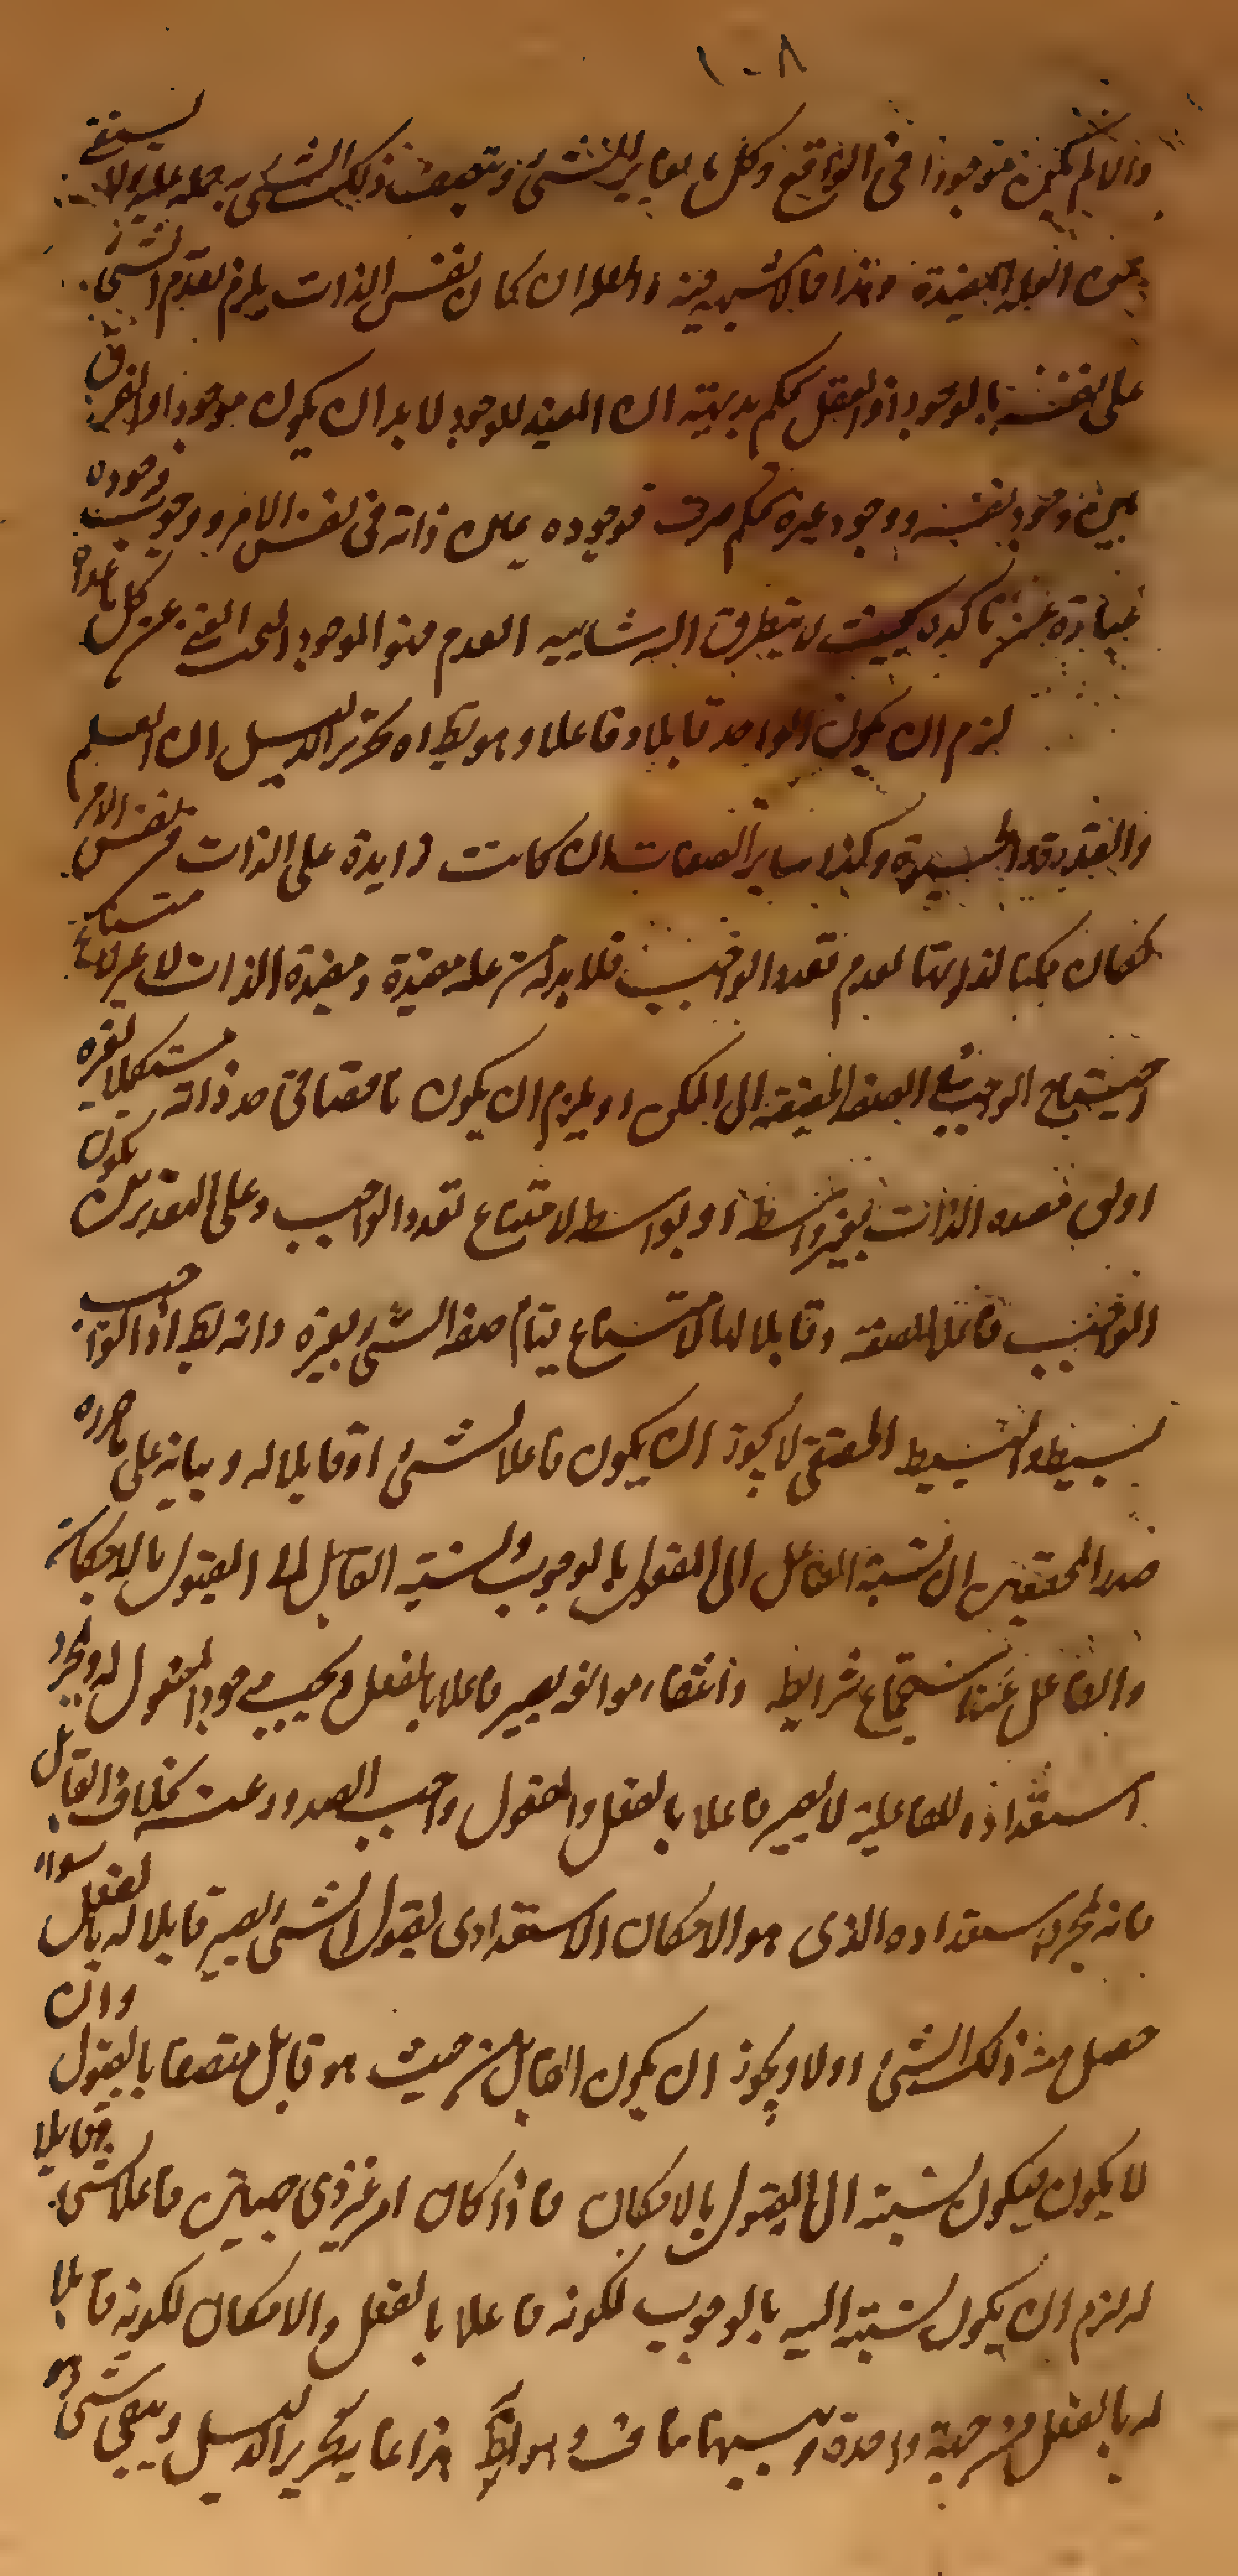 ١٠٨
والا لم يكن موجودا في الواقع وكل ما يغاير للشئ ويتصف ذلك الشئ به جملة عليه ولا يستغني
عن العلة المفيدة وهذا مما لا شبهة فيه والعلة ان كان نفس الذات يلزم تقدم الشئ
على نفسه بالوجود اذ العقل يحكم بديهة ان المفيد للوجود لا بد ان يكون موجودا والفرق
بين وجود نفسه ووجود غيره تحكم صرف فوجوده عين ذاته في نفس الامر ووجوب وجوده
عبارة عن تأكده بحيث لا يتطرق اليه شايبه العدم فهو الوجود البحت الغني عن كل ما عداه
لزم ان يكون الواحد قابلا وفاعلا وهو بط اه تحرير الدليل ان العلم
والقدرة والحيوة وكذا ساير الصفات ان كانت زايدة على الذات في نفس الامر
لكان ممكنا لذواتها لعدم تعدد الواجب فلا بد له من علة مفيدة ومفيدة الذات لا غير لامتناع
احتياج الواجب في الصفة الحقيقة الى الممكن او يلزم ان يكون ناقصا في حد ذاته مستكملا بغيره
اولى فهذه الذات بغير واسطة او بواسطه لامتناع تعدد الواجب وعلى التقديرين يكون
الواجب فاعلا للصفة وقابلا لها لامتناع قيام صفة الشئ بغيره وانه بط اذ الواجب
بسيط والبسيط الحقيقي لا يجوز ان يكون فاعلا لشئ او قابلا له وبيانه على ما حرره
صدر المحققين ان نسبة الفاعل الى المفعول بالوجوب ونسبة القابل الى المقبول بالامكان
والفاعل عند استجماع شرايطه وانتفاء موانعه يصير فاعلا بالفعل ويجب وجود المفعول له وبمجرد
استعداده للفاعلية لا يصير فاعلا بالفعل والمفعول واجب الصدور عنه بخلاف القابل
فانه بمجرد استعداده الذي هو الامكان الاستعدادي لقبول الشئ يصير قابلا له بالفعل سواء
حصل منه ذلك الشئ اولا ويجوز ان يكون القابل من حيث هو قابل متصفا بالمقبول وان
لا يكون فيكون نسبته الى المقبول بالامكان فاذا كان امر غير ذي جهتين فاعلا لشئ وقابلا
له لزم ان يكون نسبته اليه بالوجوب لكونه فاعلا بالفعل والامكان لكونه قابلا
له بالفعل من جهة واحدة وبينهما تناف وهو بط هذا غاية تحرير الدليل وبقي شئ وهو